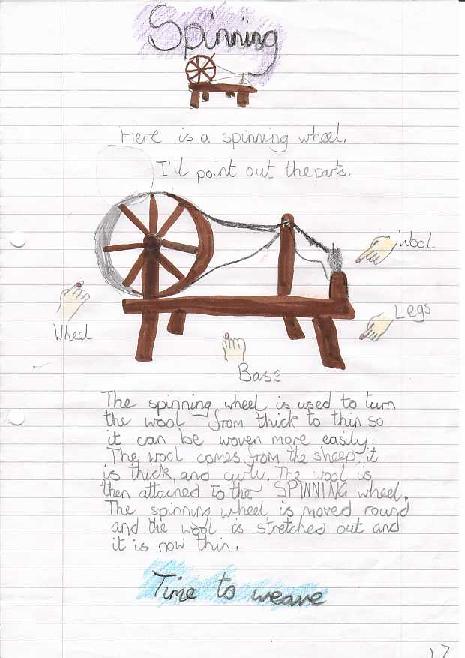 Spinning
Here is a spinning wheel.
I'll point out the parts.
wool
Wheel
Legs
Base
The spinning wheel is used to turn
the wool from thick to thin so
it can be woven more easily.
The wool comes from the sheep, it
is thick and curly. The wool is
then attached to the SPINNING wheel.
The spinning wheel is moved round
and the wool is stretched out and
it is now thin.
Time to weave